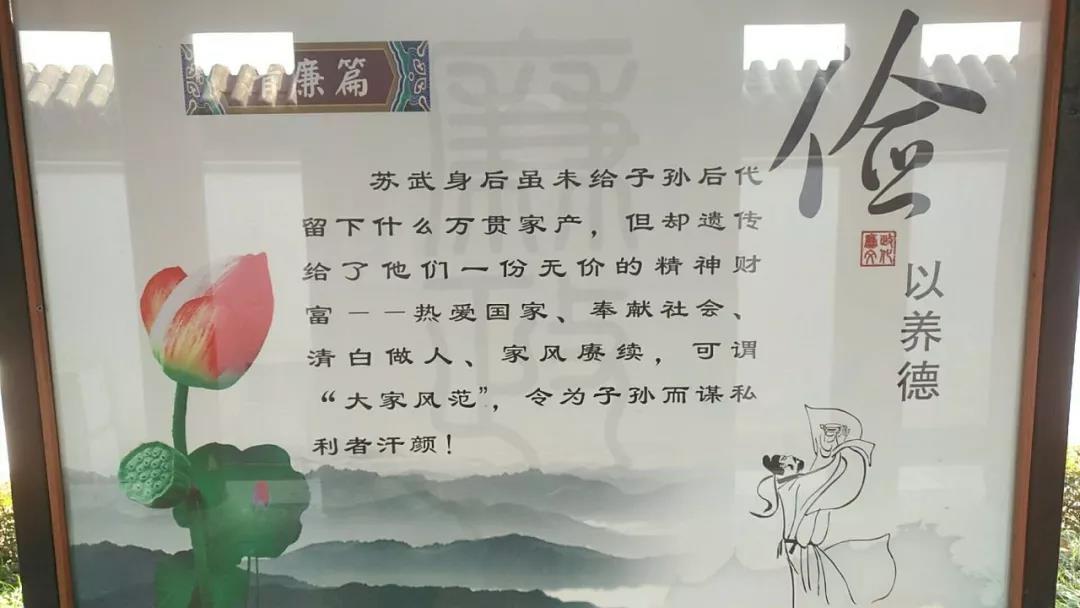 清廉篇
俭
以养德
廉政文化
苏武身后虽未给子孙后代
留下什么万贯家产，但却遗传
给了他们一份无价的精神财
富——热爱国家、奉献社会、
清白做人、家风赓续，可谓
“大家风范”，令为子孙而谋私
利者汗颜！